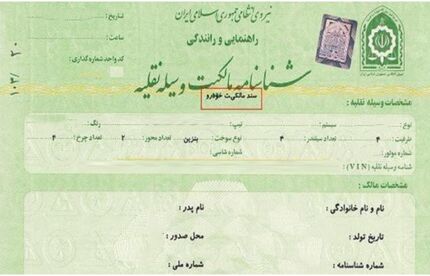 نیروی انتظامی جمهوری اسلامی ایران
راهنمایی و رانندگی
تاریخ :
ساعت :
کد واحد شماره گذاری :
۱۰۲/ ۲۰
شناسنامه مالکیت وسیله نقلیه
سند مالکیت خودرو
مشخصات وسیله نقلیه :
نوع : سیستم : تیپ : رنگ :
ظرفیت : ۴ تعداد سیلندر : ۴ نوع سوخت : بنزین تعداد محور : ۲ تعداد چرخ : ۴
شماره موتور : شماره شاسی :
شناسه وسیله نقلیه (VIN) :
مشخصات مالک :
نام و نام خانوادگی : نام پدر :
تاریخ تولد : محل صدور :
شماره شناسنامه : شماره ملی :